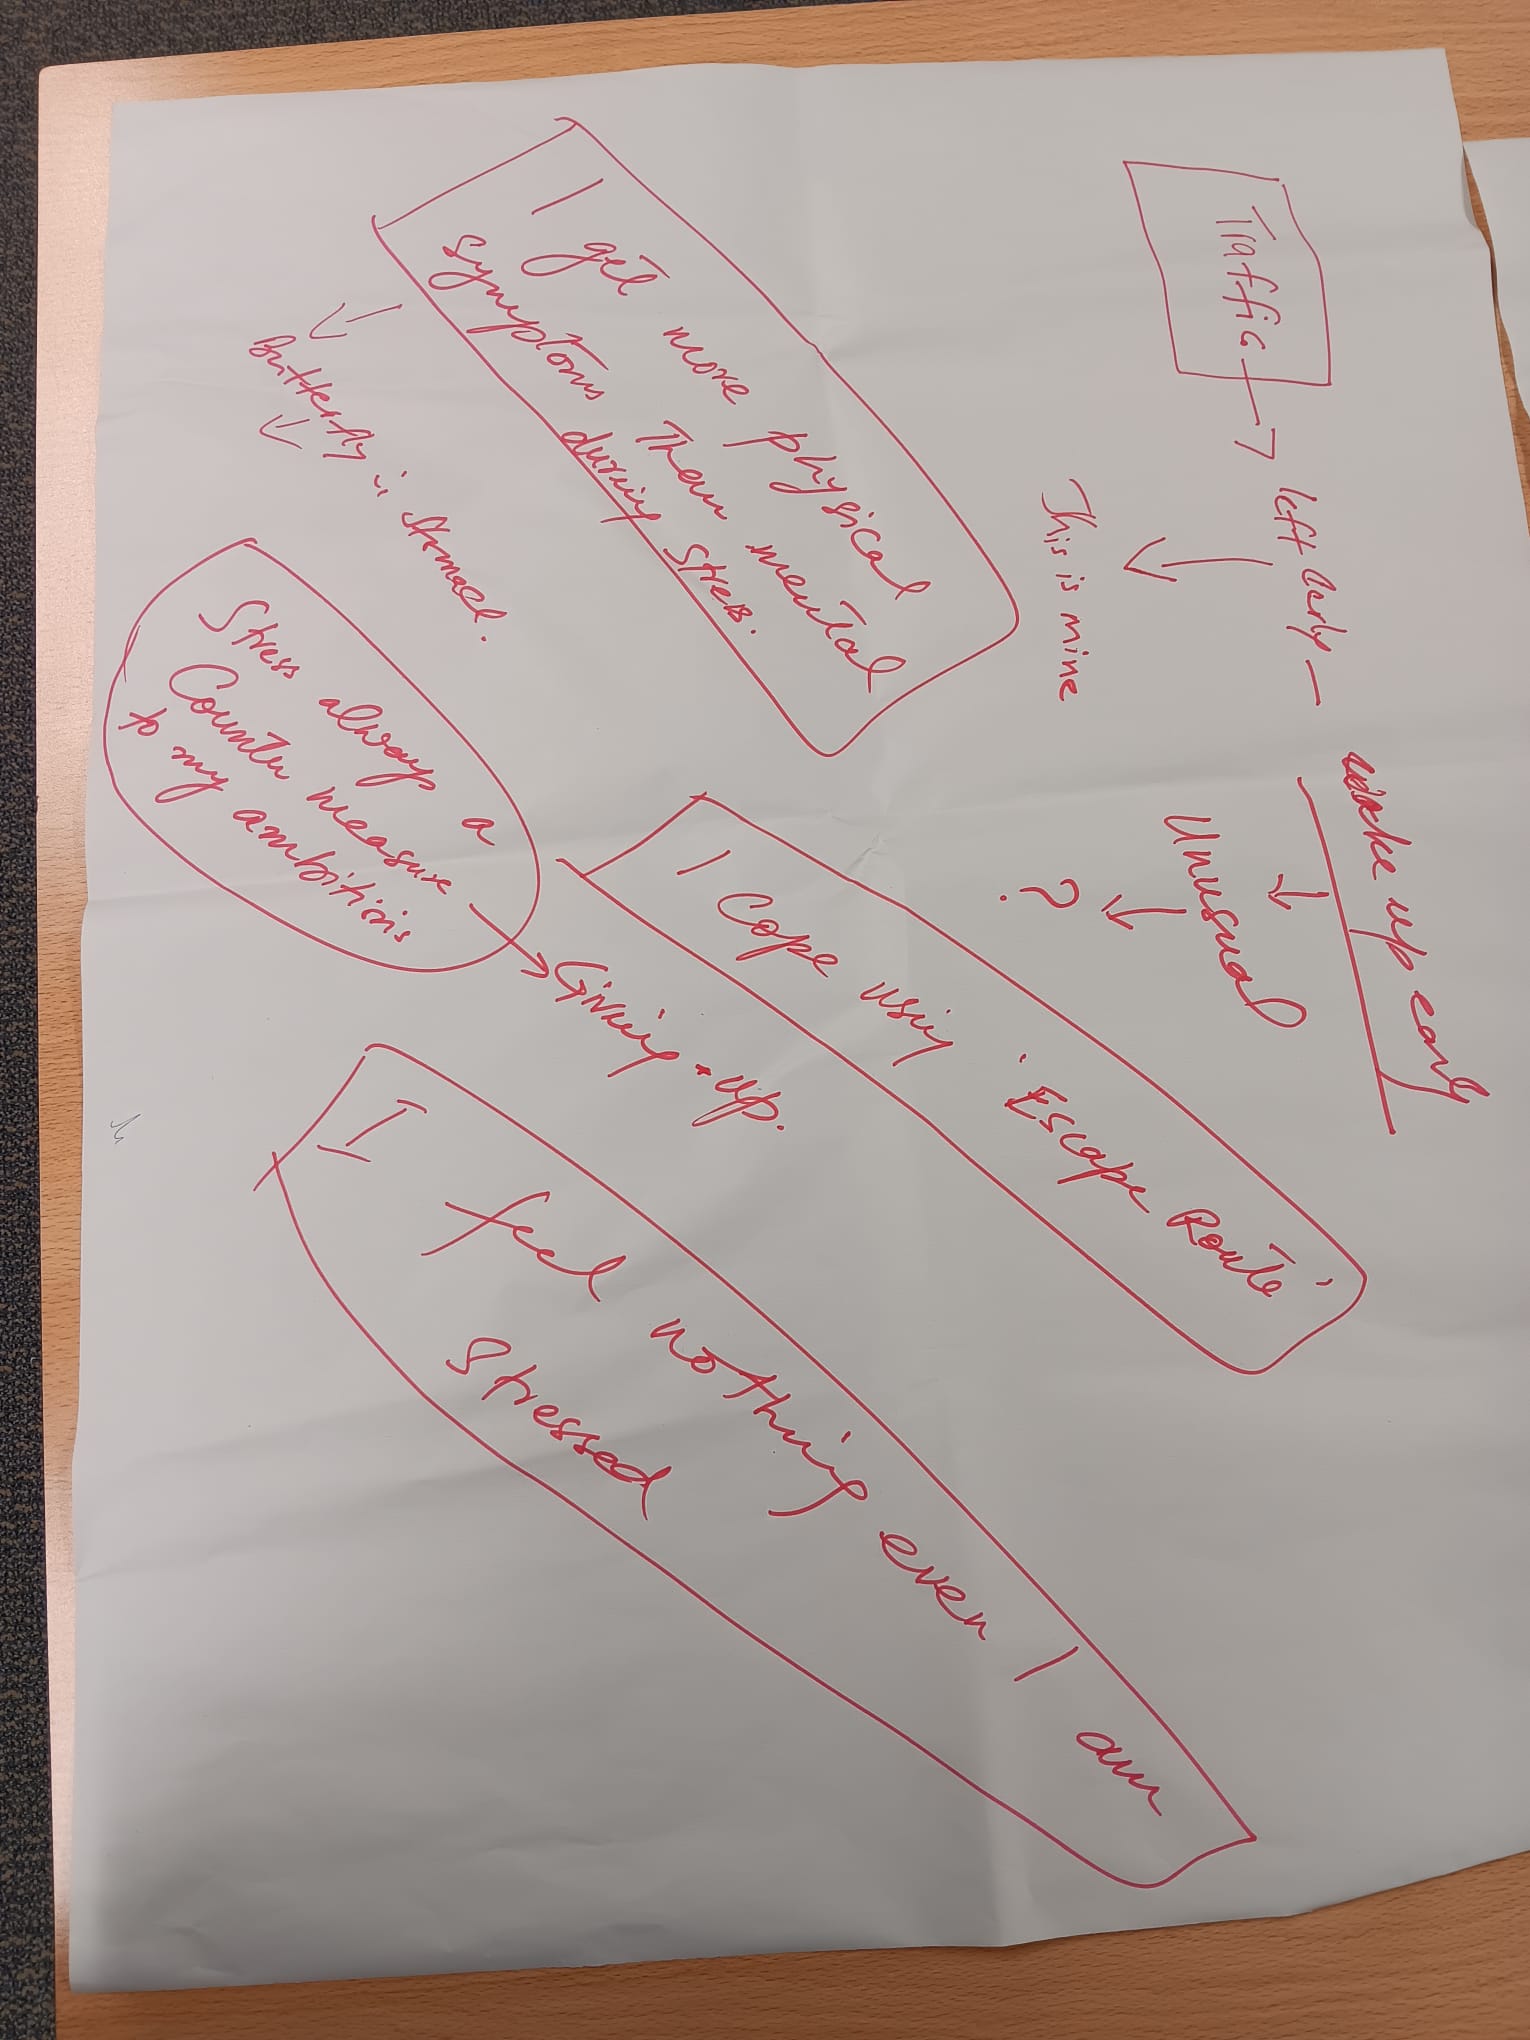 Traffic → left early —
wake up early
↓
This is mine
↓
Unusual
↓
?
I get more physical
symptoms than mental
during stress.
↓
Butterfly in stomach.
↓
I Cope using 'Escape Route'
Stress always a
Counter measure
to my ambitions
→ Giving up.
I feel nothing even I am
Stressed